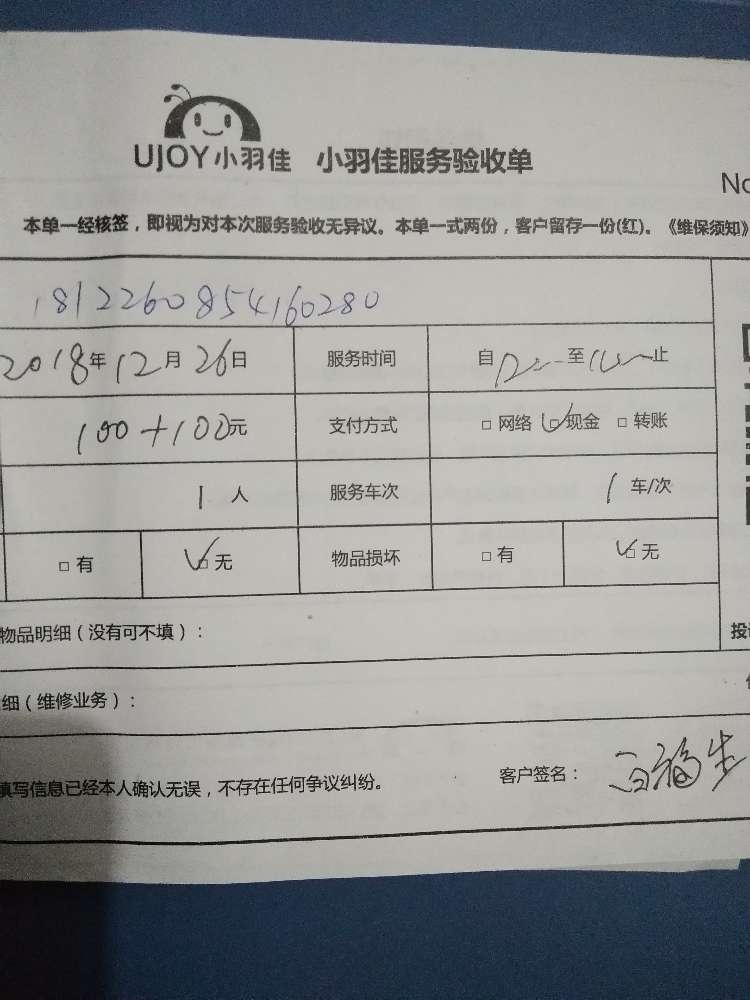 UJOY小羽佳 小羽佳服务验收单
No
本单一经核签，即视为对本次服务验收无异议。本单一式两份，客户留存一份(红)。《维保须知》
1812260854160280
2018年12月26日 服务时间 自 至 止
100+100元 支付方式 □ 网络 ☑现金 □ 转账
1人 服务车次 1车/次
□ 有 ☑无 物品损坏 □ 有 ☑无
物品明细（没有可不填）：
细（维修业务）：
填写信息已经本人确认无误，不存在任何争议纠纷。 客户签名：